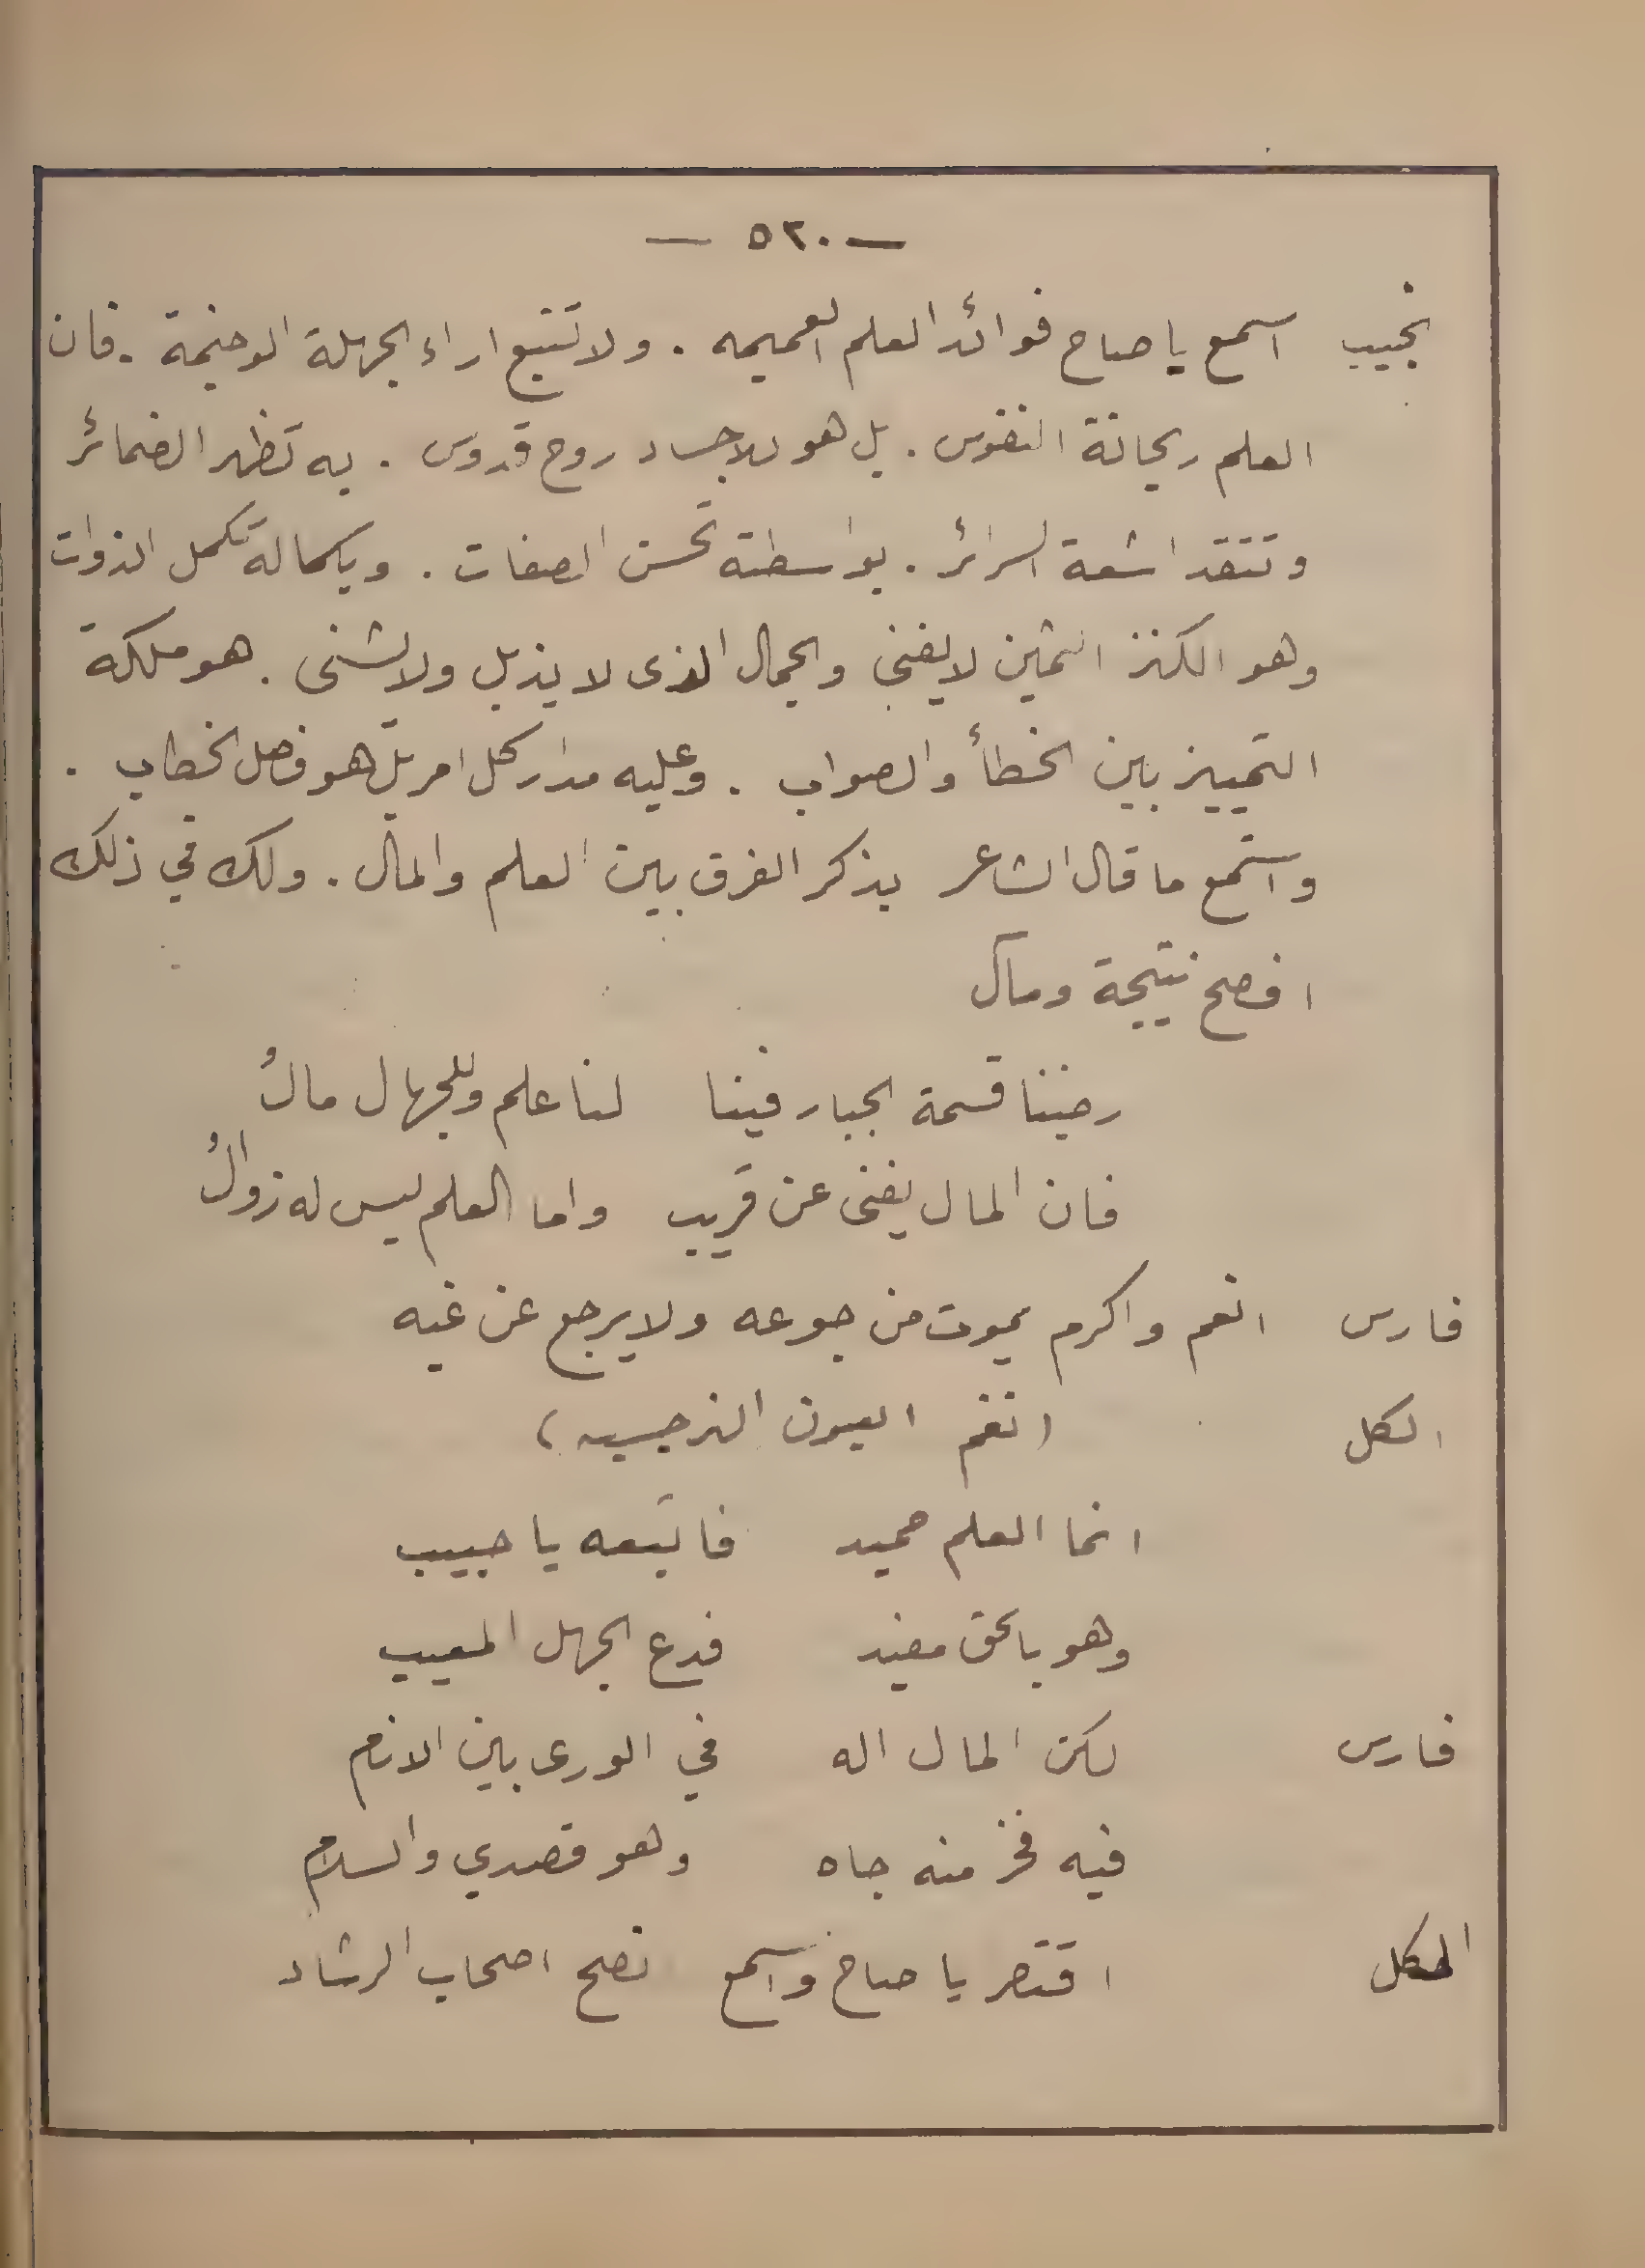 — ٥٢٠ —
نجيب اسمع يا صاح فوائد العلم العميمه . ولا تتبع اراء الجهلة الوخيمة . فان
العلم ريحانة النفوس . بل هو للاجساد روح قدوس . به تظهر الضمائر
وتتقد اشعة السرائر . بواسطته تحسن الصفات . وبكماله تكمل الذوات
وهو الكنز الثمين لا يفنى والجمال الذى لا يذبل ولا يشنى . هو ملكة
التمييز بين الخطأ والصواب . وعليه مدار كل امر بل هو فصل الخطاب .
واستمع ما قال الشاعر بذكر الفرق بين العلم والمال . ولك في ذلك
افصح نتيجة ومآل
رضينا قسمة الجبار فينا لنا علم وللجهال مالُ
فان المال يفنى عن قريب واما العلم ليس له زوالُ
فارس انعم واكرم يموت من جوعه ولا يرجع عن غيه
الكل (نغم العيون النرجسيه)
انما العلم حميد فاتبعه يا حبيب
وهو بالحق مفيد فدع الجهل المعيب
فارس لكن المال اله في الورى بين الانام
فيه فخر منه جاه وهو قصدي والسلام
الكل اقتصر يا صاح واسمع نصح اصحاب الرشاد